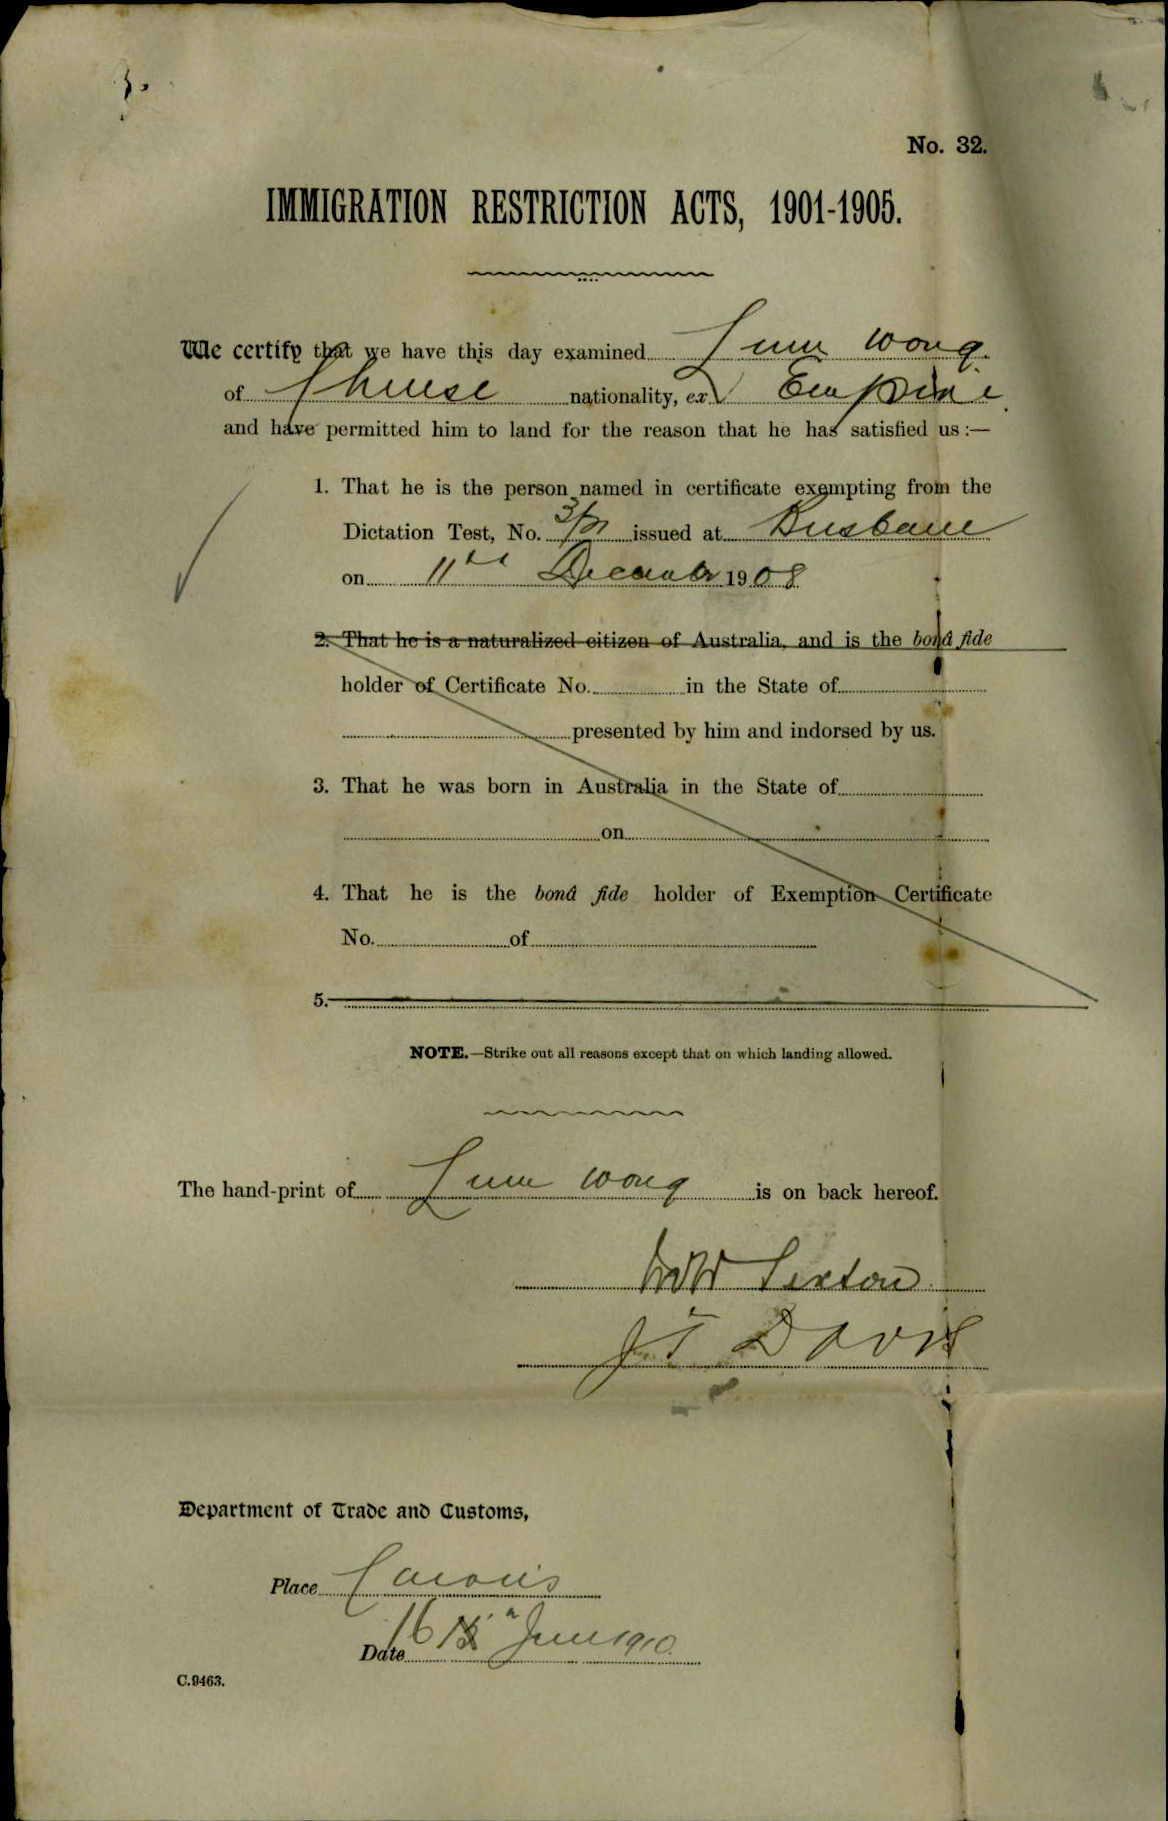 No. 32.
IMMIGRATION RESTRICTION ACTS, 1901-1905.
We certify that we have this day examined Lum Wong
of Chinese nationality, ex Empire
and have permitted him to land for the reason that he has satisfied us:—
1. That he is the person named in certificate exempting from the
Dictation Test, No. issued at Brisbane
on 11th December 1908
2. That he is a naturalized citizen of Australia, and is the bonâ fide
holder of Certificate No. in the State of
presented by him and indorsed by us.
3. That he was born in Australia in the State of
on
4. That he is the bonâ fide holder of Exemption Certificate
No. of
5.
NOTE.—Strike out all reasons except that on which landing allowed.
The hand-print of Lum Wong is on back hereof.
Sexton
J T Davis
Department of Trade and Customs,
Place Cairns
Date 16 June 1910
C.9463.